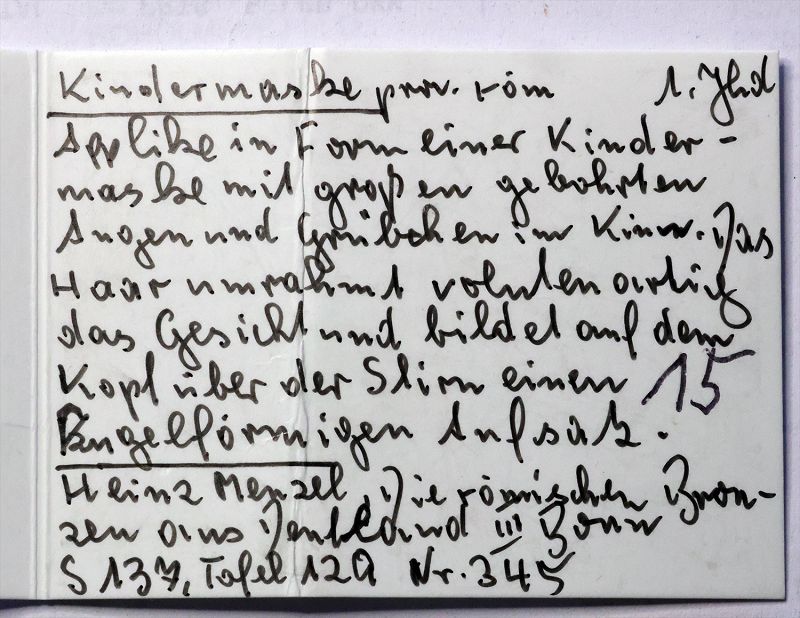 Kindermaske prov. röm 1. Jhd
Applike in Form einer Kinder-
maske mit großen gebohrten
Augen und Grübchen im Kinn. Das
Haar umrahmt volutenartig
das Gesicht und bildet auf dem
Kopf über der Stirn einen 15
Kugelförmigen Aufsatz.
Heinz Menzel, Die römischen Bron-
zen aus Deutschland III Bonn
S 137, Tafel 129 Nr. 345